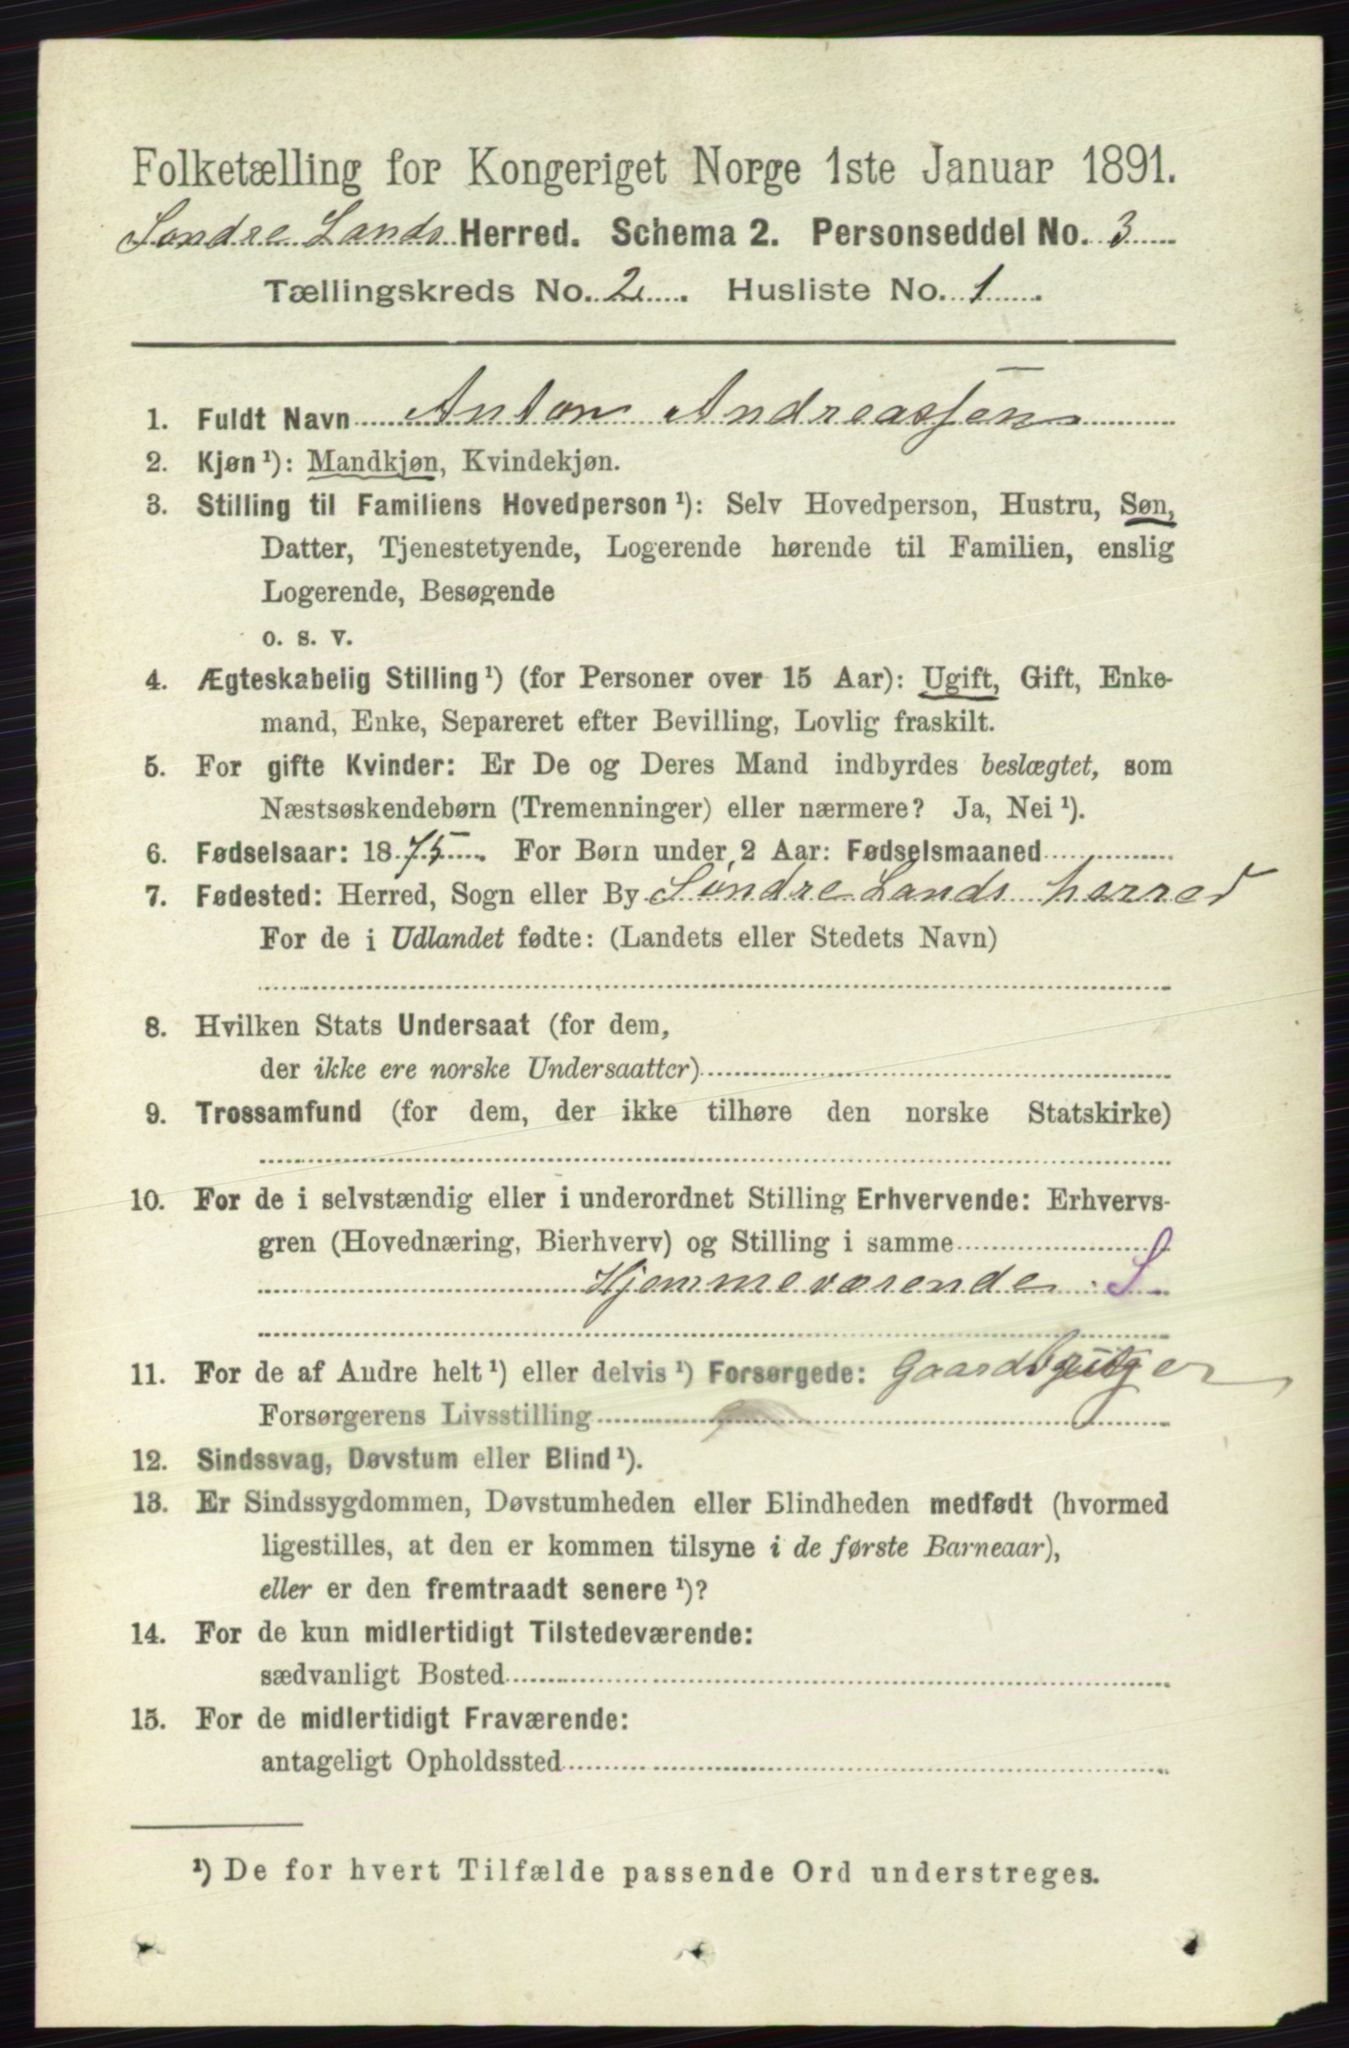 Folketælling for Kongeriget Norge 1ste Januar 1891.
Søndre Lands Herred. Schema 2. Personseddel No. 3
Tællingskreds No. 2. Husliste No. 1.
1. Fuldt Navn Anton Andreassen
2. Kjøn ¹): Mandkjøn, Kvindekjøn.
3. Stilling til Familiens Hovedperson ¹): Selv Hovedperson, Hustru, Søn,
Datter, Tjenestetyende, Logerende hørende til Familien, enslig
Logerende, Besøgende
o. s. v.
4. Ægteskabelig Stilling ¹) (for Personer over 15 Aar): Ugift, Gift, Enke-
mand, Enke, Separeret efter Bevilling, Lovlig fraskilt.
5. For gifte Kvinder: Er De og Deres Mand indbyrdes beslægtet, som
Næstsøskendebørn (Tremenninger) eller nærmere? Ja, Nei ¹).
6. Fødselsaar: 1875. For Børn under 2 Aar: Fødselsmaaned
7. Fødested: Herred, Sogn eller By Søndre Lands herred
For de i Udlandet fødte: (Landets eller Stedets Navn)
8. Hvilken Stats Undersaat (for dem,
der ikke ere norske Undersaatter)
9. Trossamfund (for dem, der ikke tilhøre den norske Statskirke)
10. For de i selvstændig eller i underordnet Stilling Erhvervende: Erhvervs-
gren (Hovednæring, Bierhverv) og Stilling i samme
Hjemmeværende S
11. For de af Andre helt ¹) eller delvis ¹) Forsørgede: Gaardbruger
Forsørgerens Livsstilling
12. Sindssvag, Døvstum eller Blind ¹).
13. Er Sindssygdommen, Døvstumheden eller Blindheden medfødt (hvormed
ligestilles, at den er kommen tilsyne i de første Barneaar),
eller er den fremtraadt senere ¹)?
14. For de kun midlertidigt Tilstedeværende:
sædvanligt Bosted
15. For de midlertidigt Fraværende:
antageligt Opholdssted
¹) De for hvert Tilfælde passende Ord understreges.